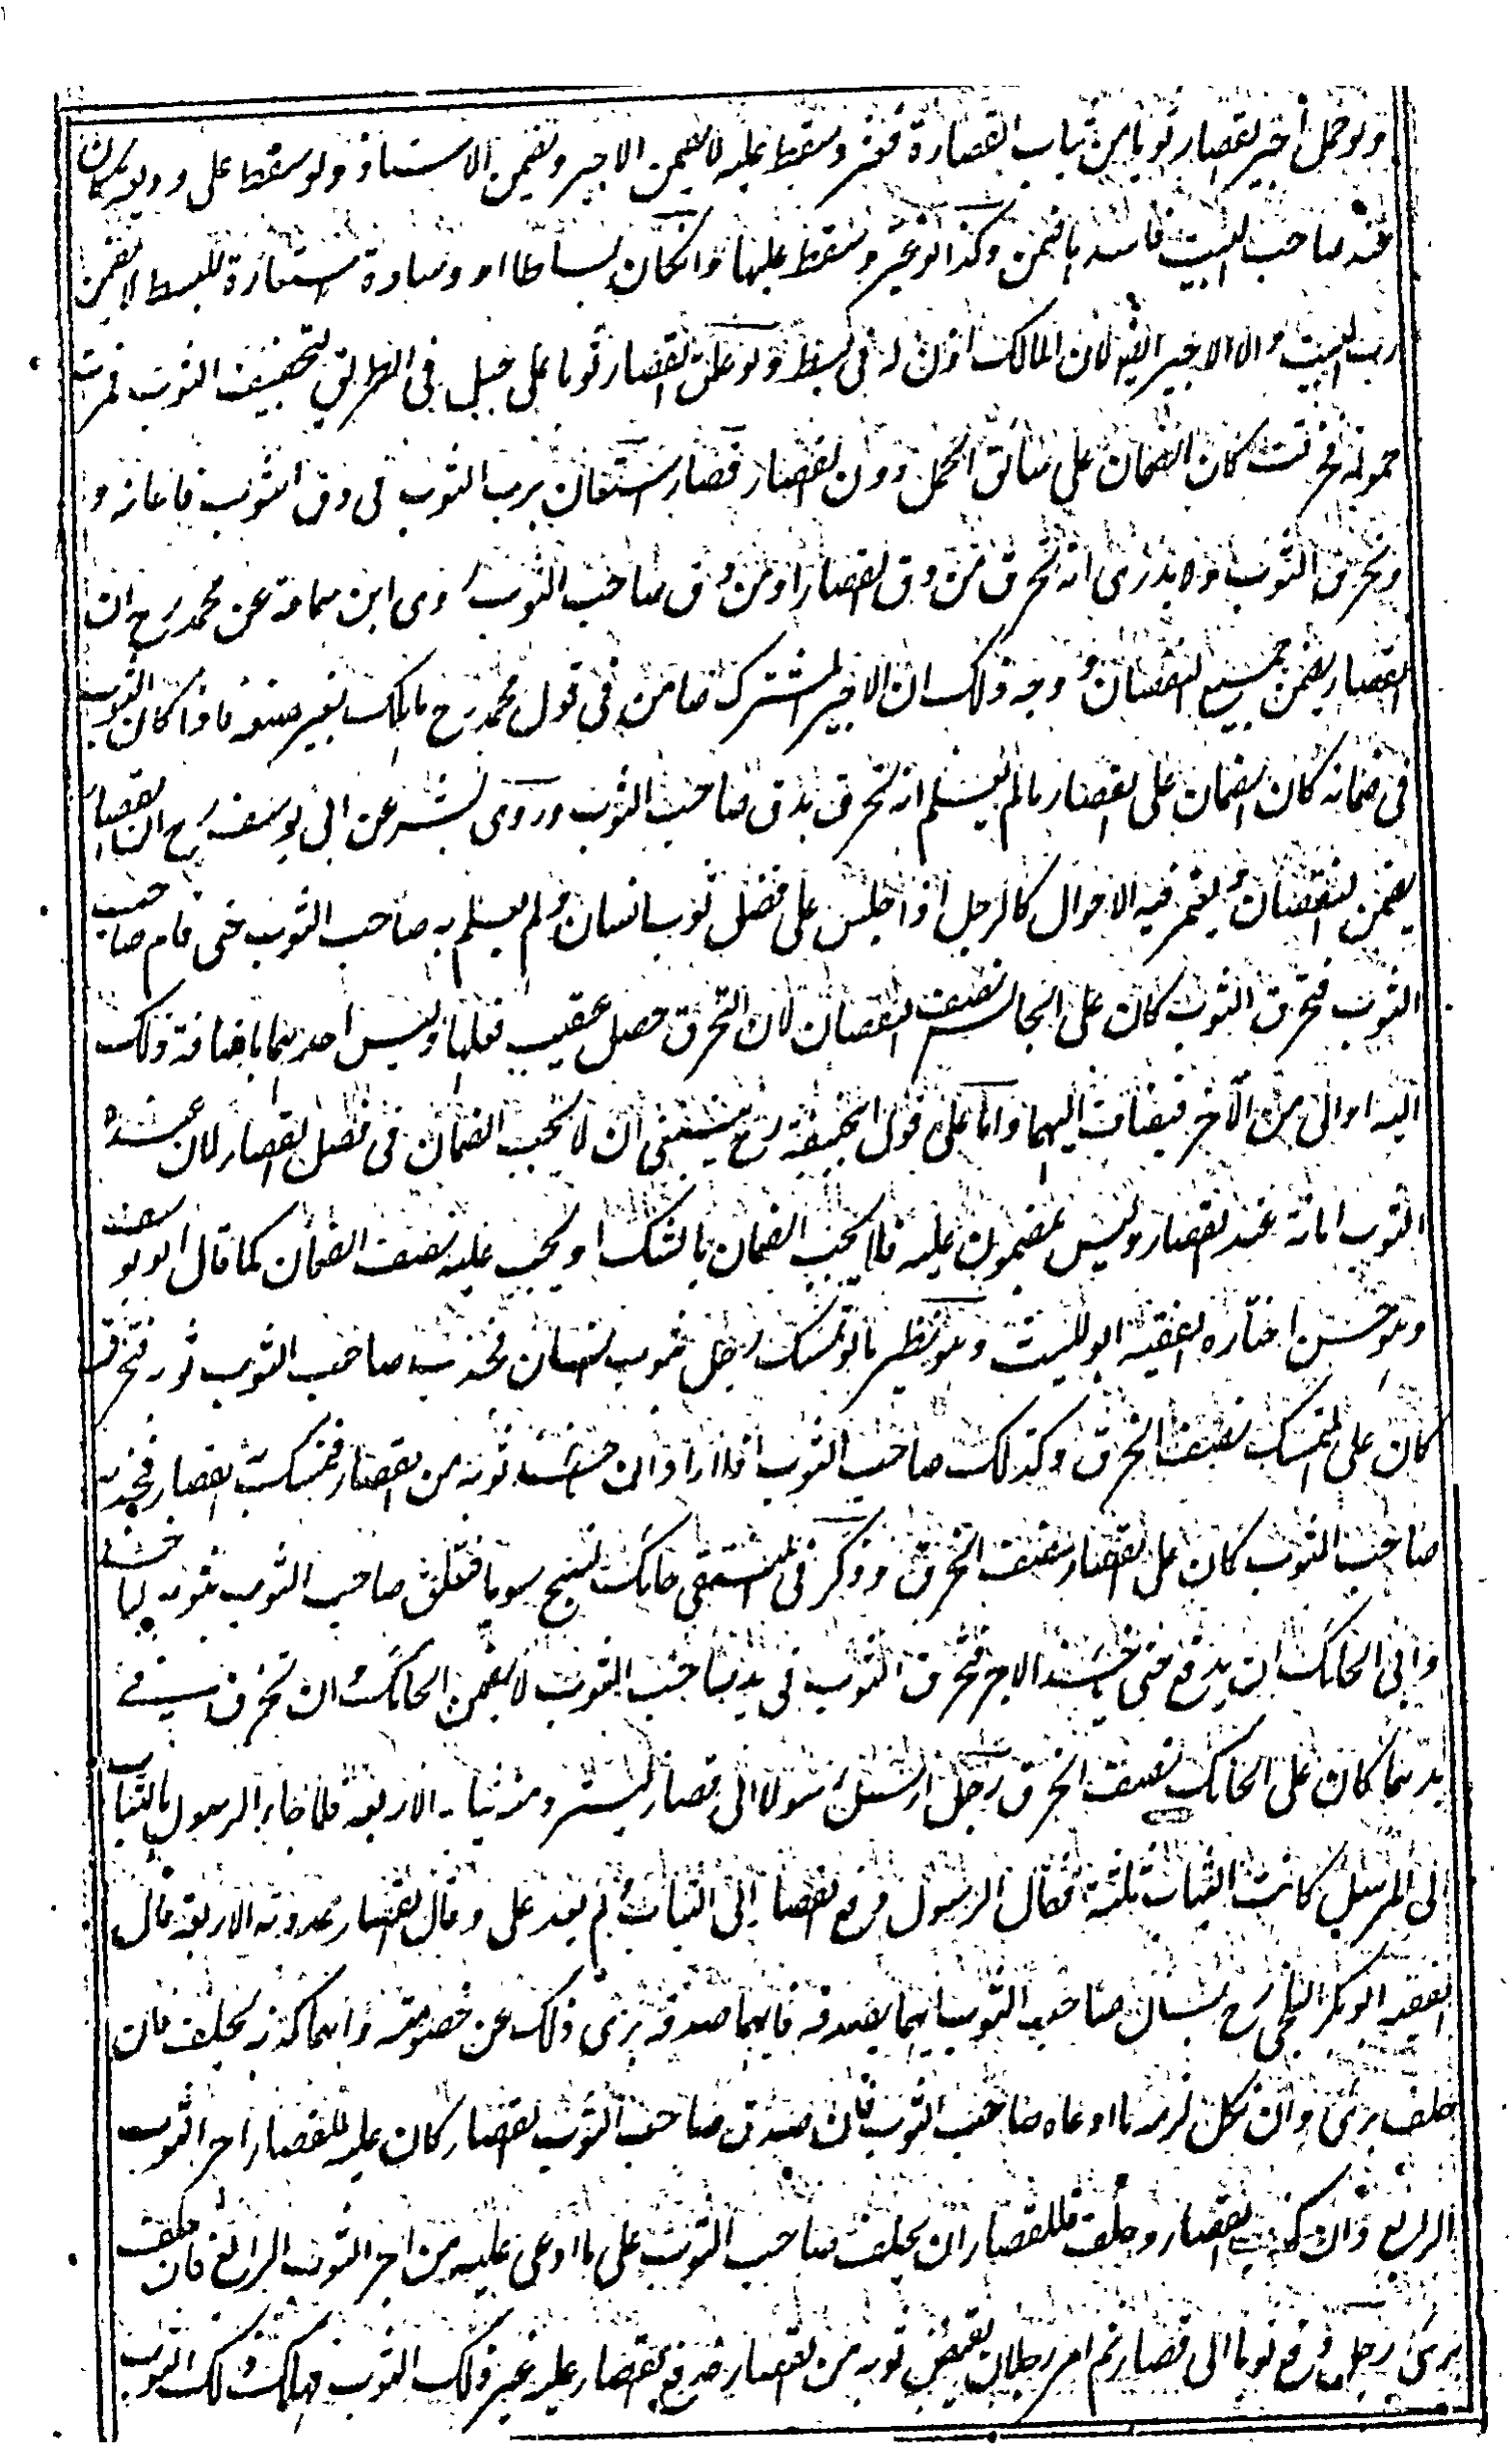 ولو حمل أجير القصار ثوبا من ثياب القصارة فعثر وسقط عليه لا يضمن الاجير ويضمن الاستاذ ولو سقط على وديعة كان
عند صاحب البيت فافسدها ضمن وكذا لو عثر وسقط عليها وانكان بساطا او وسادة مستعارة للبسط لا يضمن
رب البيت ولا الاجير الخ لان المالك اذن له في بسطه ولو علق القصار ثوبا على حبل في الطريق لتجفيف الثوب فمرت
حمولة فخرقت كان الضمان على سائق الحمل دون القصار قصار استعان برب الثوب في دق الثوب فاعانه و
وتخرق الثوب ولا يدرى انه تخرق من دق القصار او من دق صاحب الثوب روى ابن سماعة عن محمد رح ان
القصار يضمن جميع النقصان وجه ذلك ان الاجير المشترك ضامن في قول محمد رح ما هلك بغير صنعه فاذا كان الثوب
في ضمانه كان الضمان على القصار ما لم يعلم انه تخرق بدق صاحب الثوب وروى بشر عن ابي يوسف رح ان القصار
يضمن النقصان ويعتبر فيه الاحوال كالرجل اذا جلس على فضل ثوب انسان ولم يعلم به صاحب الثوب حتى قام صاحب
الثوب فتخرق الثوب كان على الجالس نصف النقصان لان التخرق حصل عقيب فعلهما وليس احدهما باضافة ذلك
اليه اولى من الآخر فيضاف اليهما واما على قول ابيحنيفة رح ينبغي ان لا يجب الضمان في فصل القصار لان عنده
الثوب امانة عند القصار وليس بمضمون عليه فلا يجب الضمان بالشك او يجب عليه نصف الضمان كما قال ابو يوسف
وهو حسن اختاره الفقيه ابو الليث وهو نظير ما لو تمسك رجل بثوب انسان فجذب صاحب الثوب ثوبه فتخرق
كان على المتمسك نصف الخرق وكذلك صاحب الثوب اذا اراد ان يأخذ ثوبه من القصار فتمسك به القصار فجذبه
صاحب الثوب كان على القصار نصف الخرق وذكر في المنتقى حائك نسج ثوبا فتعلق صاحب الثوب بثوبه ليأخذه
وابى الحائك ان يدفع حتى يأخذ الاجر فتخرق الثوب في يد صاحب الثوب لا يضمن الحائك وان تخرق في
يديهما كان على الحائك نصف الخرق رجل ارسل رسولا الى قصار ليسترد منه ثيابه الاربعة فلما جاء الرسول بالثياب
الى المرسل كانت الثياب ثلثة فقال الرسول دفع القصار الي الثياب ولم يعد علي وقال القصار عددته الاربعة قال
الفقيه ابو بكر البلخي رح يسأل صاحب الثوب ايهما يصدقه فايهما صدقه برئ ذلك عن خصومته وايهما كذبه يحلف فان
حلف برئ وان نكل لزمه ما ادعاه صاحب الثوب فان صدق صاحب الثوب القصار كان عليه للقصار اجر الثوب
الرابع وان كذب القصار وحلف فللقصار ان يحلف صاحب الثوب على ما ادعى عليه من اجر الثوب الرابع فان حلف
برئ رجل دفع ثوبا الى قصار ثم امر رجلا بقبض ثوبه من القصار فدفع القصار عليه غير ذلك الثوب فهلك ذلك الثوب